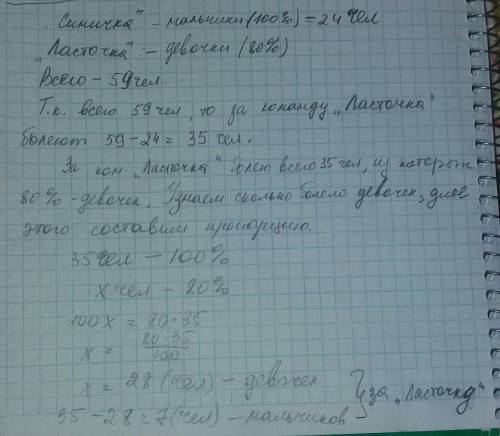 „Синичка" – мальчики (100%) = 24 чел
„Ласточка" – девочки (80%)
Всего – 59 чел.
Т.к. всего 59 чел, то за команду „Ласточка"
болеют 59 – 24 = 35 чел.
За ком. „Ласточка" болею всего 35 чел, из которых
80% – девочек. Узнаем сколько болело девочек, для
этого составим пропорцию.
35 чел – 100%
x чел – 80%
100x = 80·35
x = 80·35/100
x = 28 (чел) – девочек
35 – 28 = 7 (чел) – мальчиков } за „Ласточку"